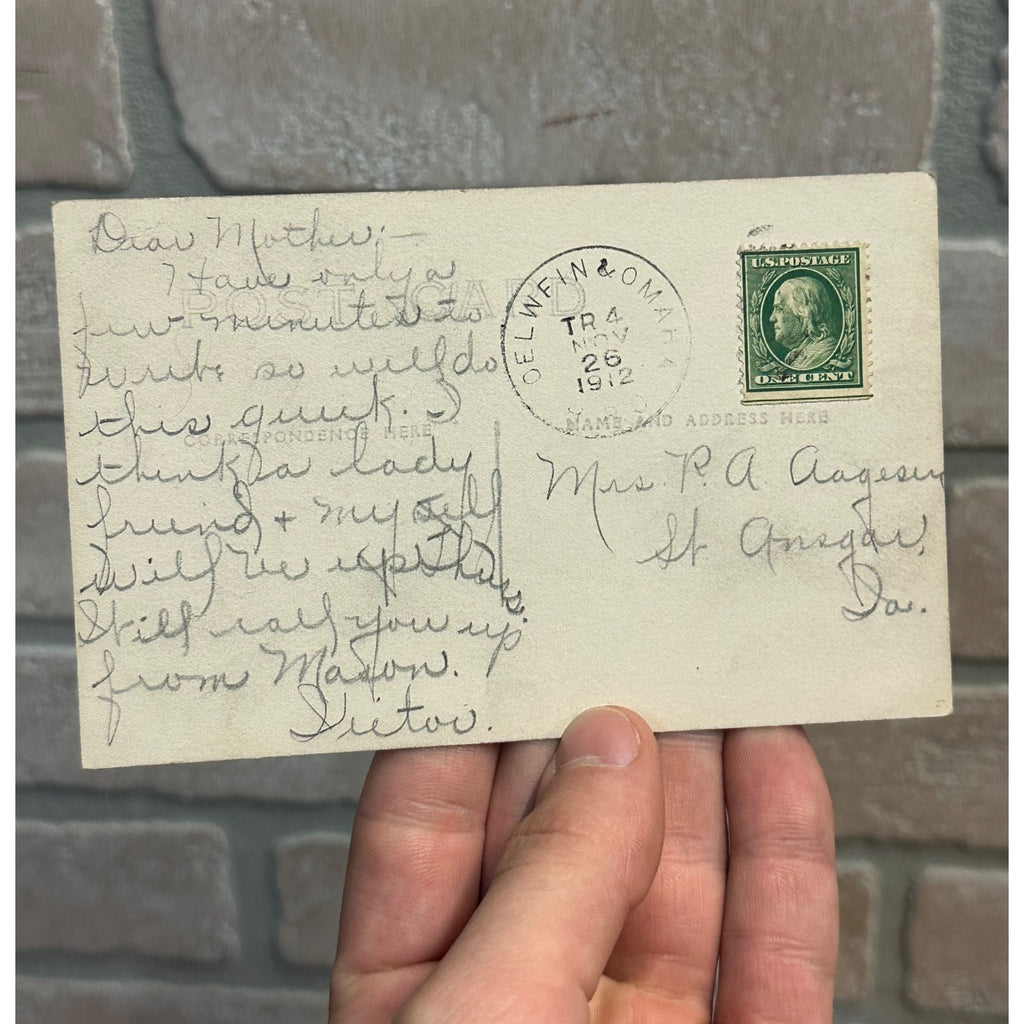 Dear Mother;—
I have only a
few minutes to
write so will do
this quick. I
think a lady
friend + myself
will be up Thurs.
Will call you up
from Mason.
Victor.
POST CARD
CORRESPONDENCE HERE
OELWEIN & OMAHA
TR 4
NOV
26
1912
R.P.O.
U.S. POSTAGE
ONE CENT
NAME AND ADDRESS HERE
Mrs. P. A Aagesen
St Ansgar,
Ia.